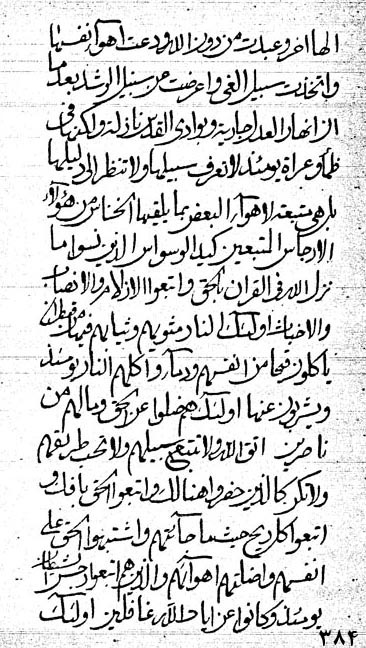 الها اخر و عبدت من دون الله و دعت اهواء نفسها
و اتخذت سبيل الغى و اعرضت عن سبيل الرشد بعد ما
ان انهار العدل جارية و بوادى القدر نازلة و لكنها فى
ظمأ و عراة يومئذ لا تعرف سبيلها و لا تنظر الى دليلها
بل هى متبعة لاهواء البعض بما يلقيها الخناس من هؤلاء
الارجاس المتبعين كيد الوسواس الذين نسوا ما
نزل الله فى القران بالحق و اتبعوا الازلام و الانصاب
و الاخباث اولئك النار مثويهم و ثيابهم
ياكلون قيحا من انفسهم و دماء و اكلهم النار يومئذ
و يشربون عنها اولئك هم ضلوا عن الحق و مالهم من
ناصرين اتق الله و لا تتبع سبيلهم و لا تحط طريقهم
و لا تكن كالذين خسروا هنالك و اتبعوا الحق بافك و
اتبعوا كل ريح حيث ما حائتهم و اشتبهوا الحق على
انفسهم و اضلتهم اهوائهم و الذين هم اتبعوا
يومئذ و كانوا عن ايات الله غافلين اولئك
٣٨٤